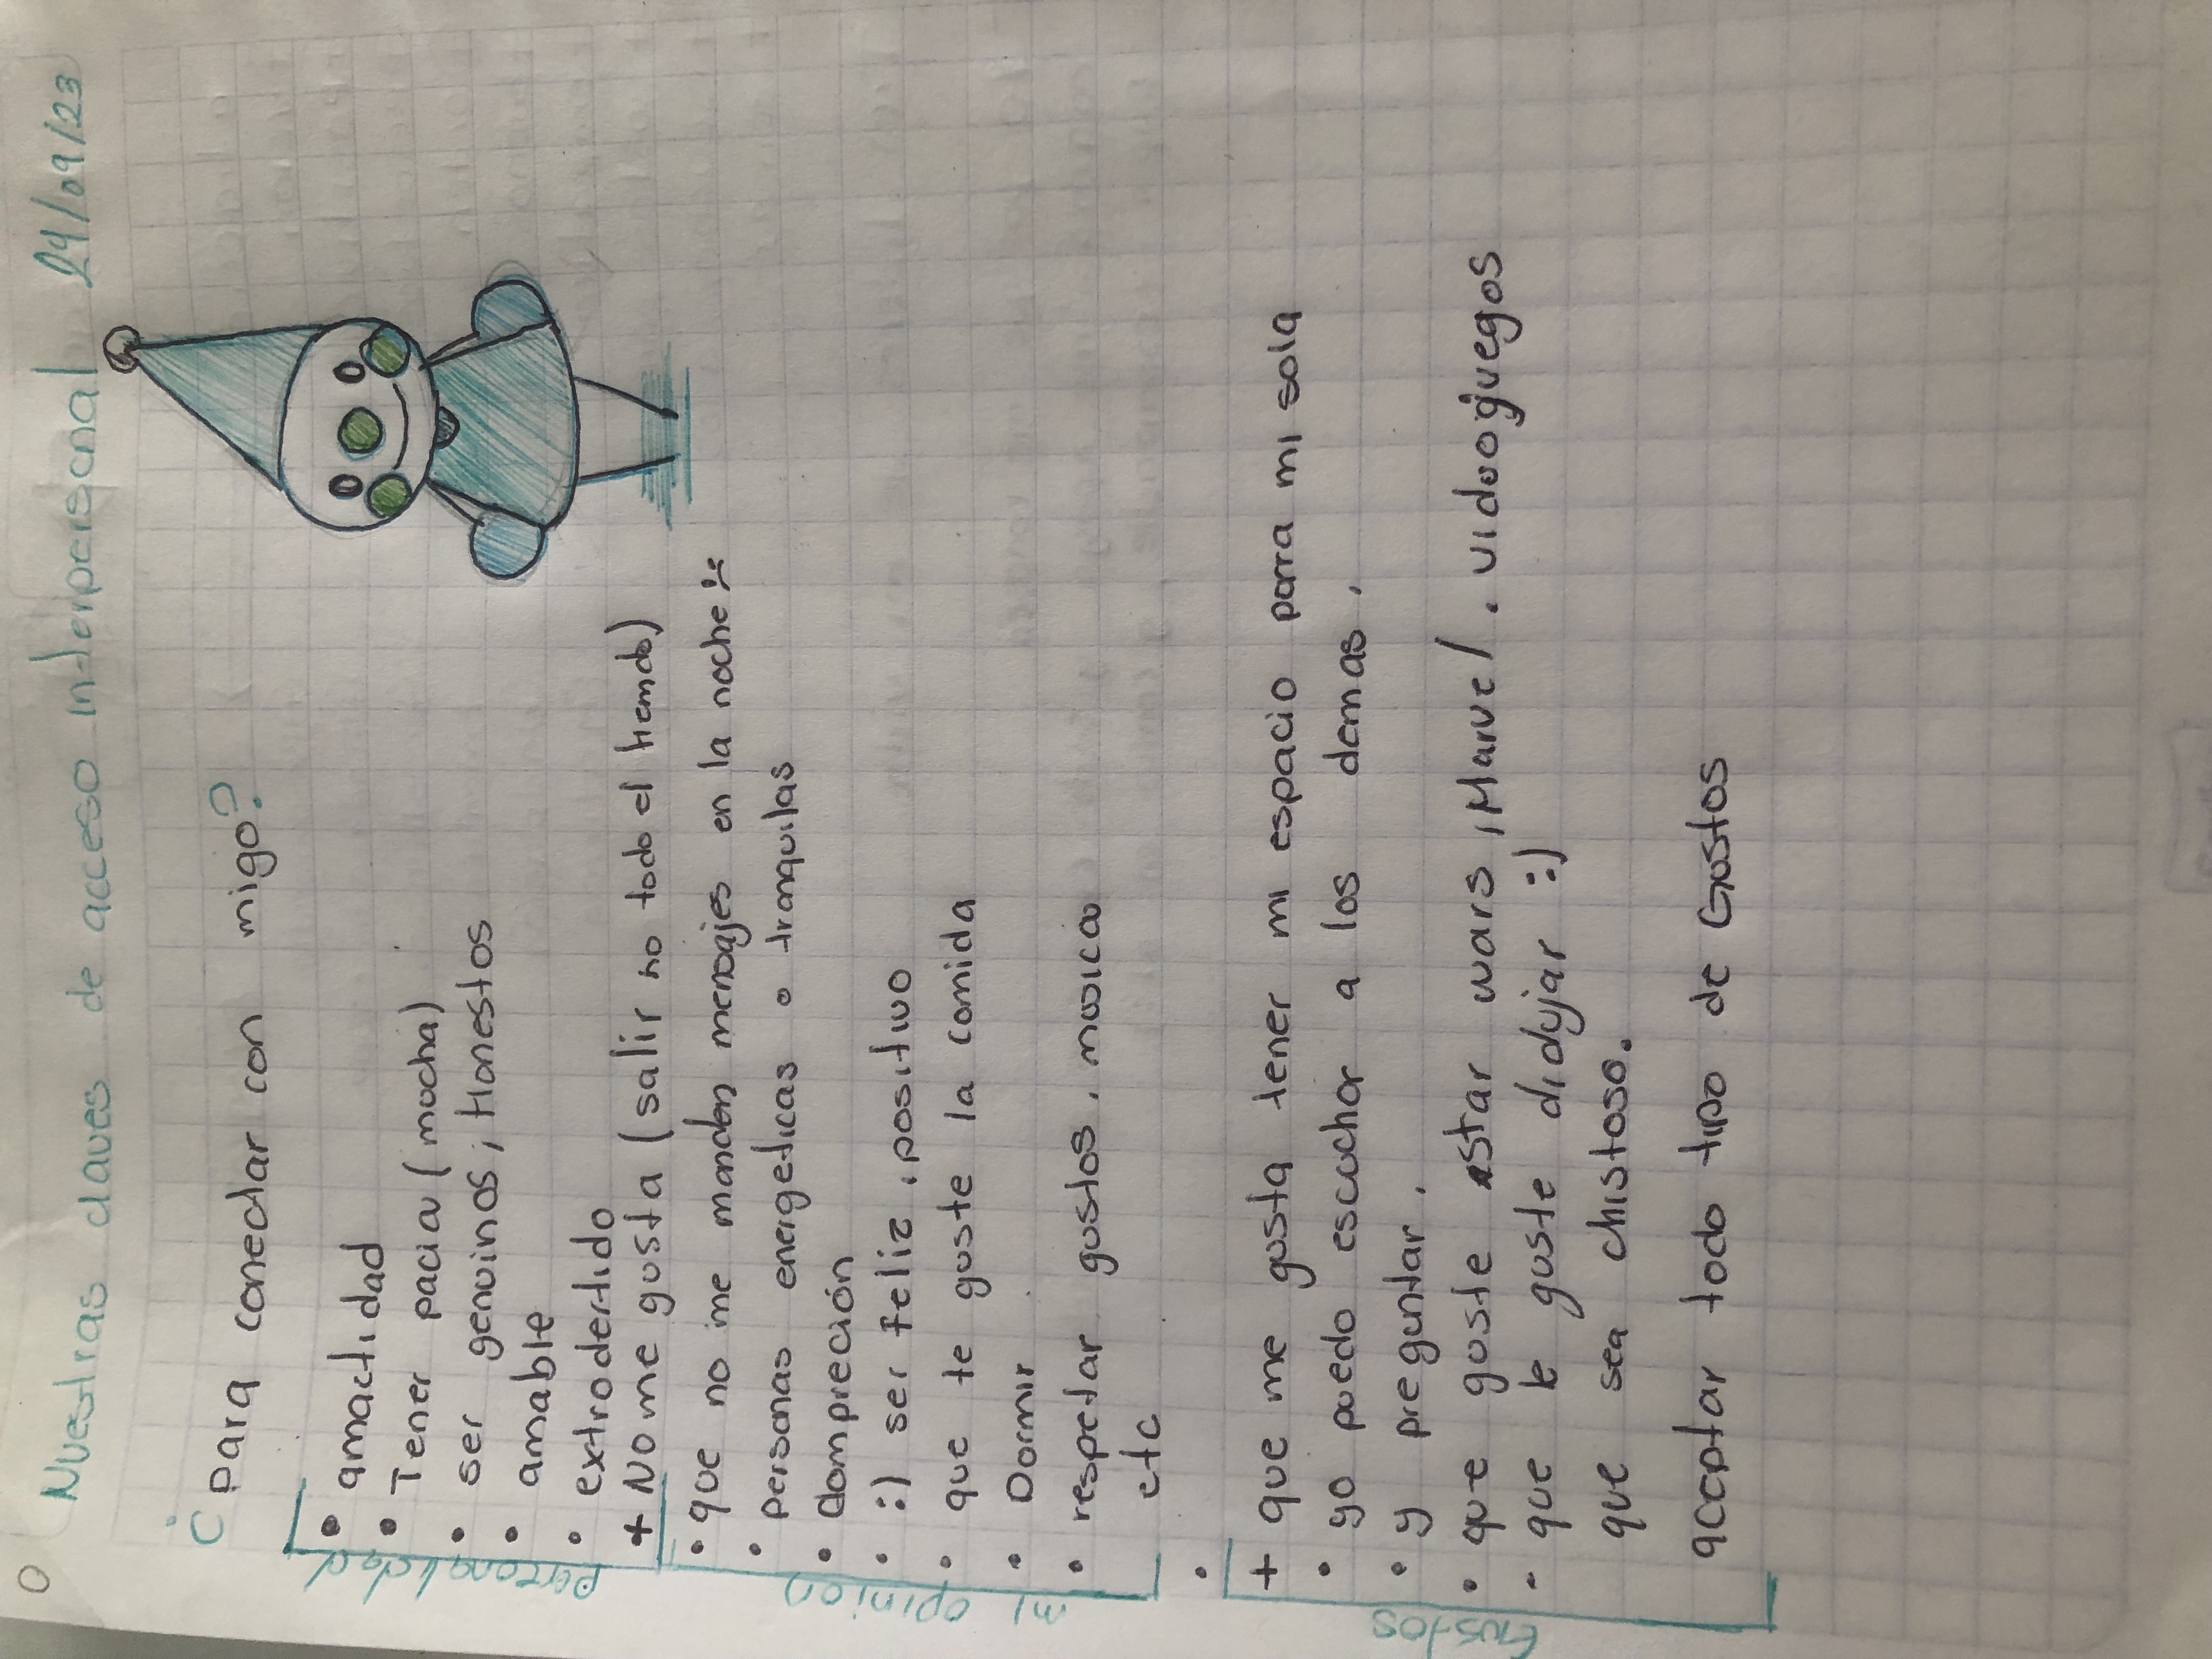 Nuestras claves de acceso interpersonal 24/09/23
¿Para conectar con migo?
personalidad
• amactidad
• Tener pacia (mucha)
• ser genuinos, Honestos
• amable
• extrodertido
+ No me gusta (salir no todo el tiempo)
mi opinion
• que no me manden mensajes en la noche :(
• personas energeticas o tranquilas
• compreción
• :) ser feliz, positivo
• que te guste la comida
• Dormir
• respetar gustos, musica
etc
Gustos
+ que me gusta tener mi espacio para mi sola
• yo puedo escuchar a los demas,
• y preguntar,
• que guste estar wars, Marvel, videojuegos
- que le guste didujar :)
que sea chistoso.
aceptar todo tipo de Gustos